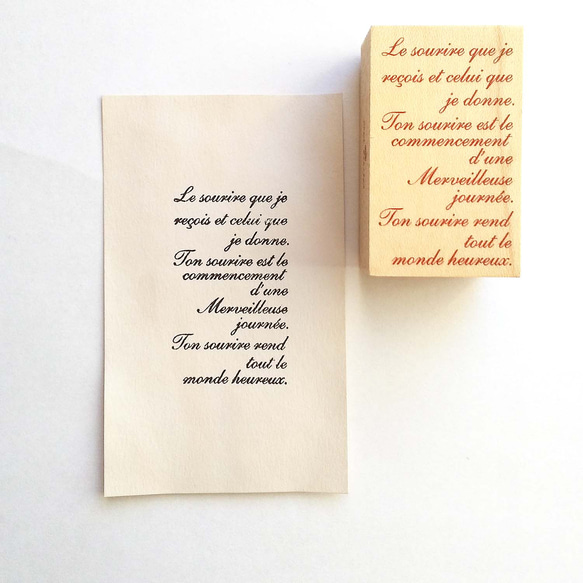 Le sourire que je
reçois et celui que
je donne.
Ton sourire est le
commencement
d'une
Merveilleuse
journée.
Ton sourire rend
tout le
monde heureux.
Le sourire que je
reçois et celui que
je donne.
Ton sourire est le
commencement
d'une
Merveilleuse
journée.
Ton sourire rend
tout le
monde heureux.